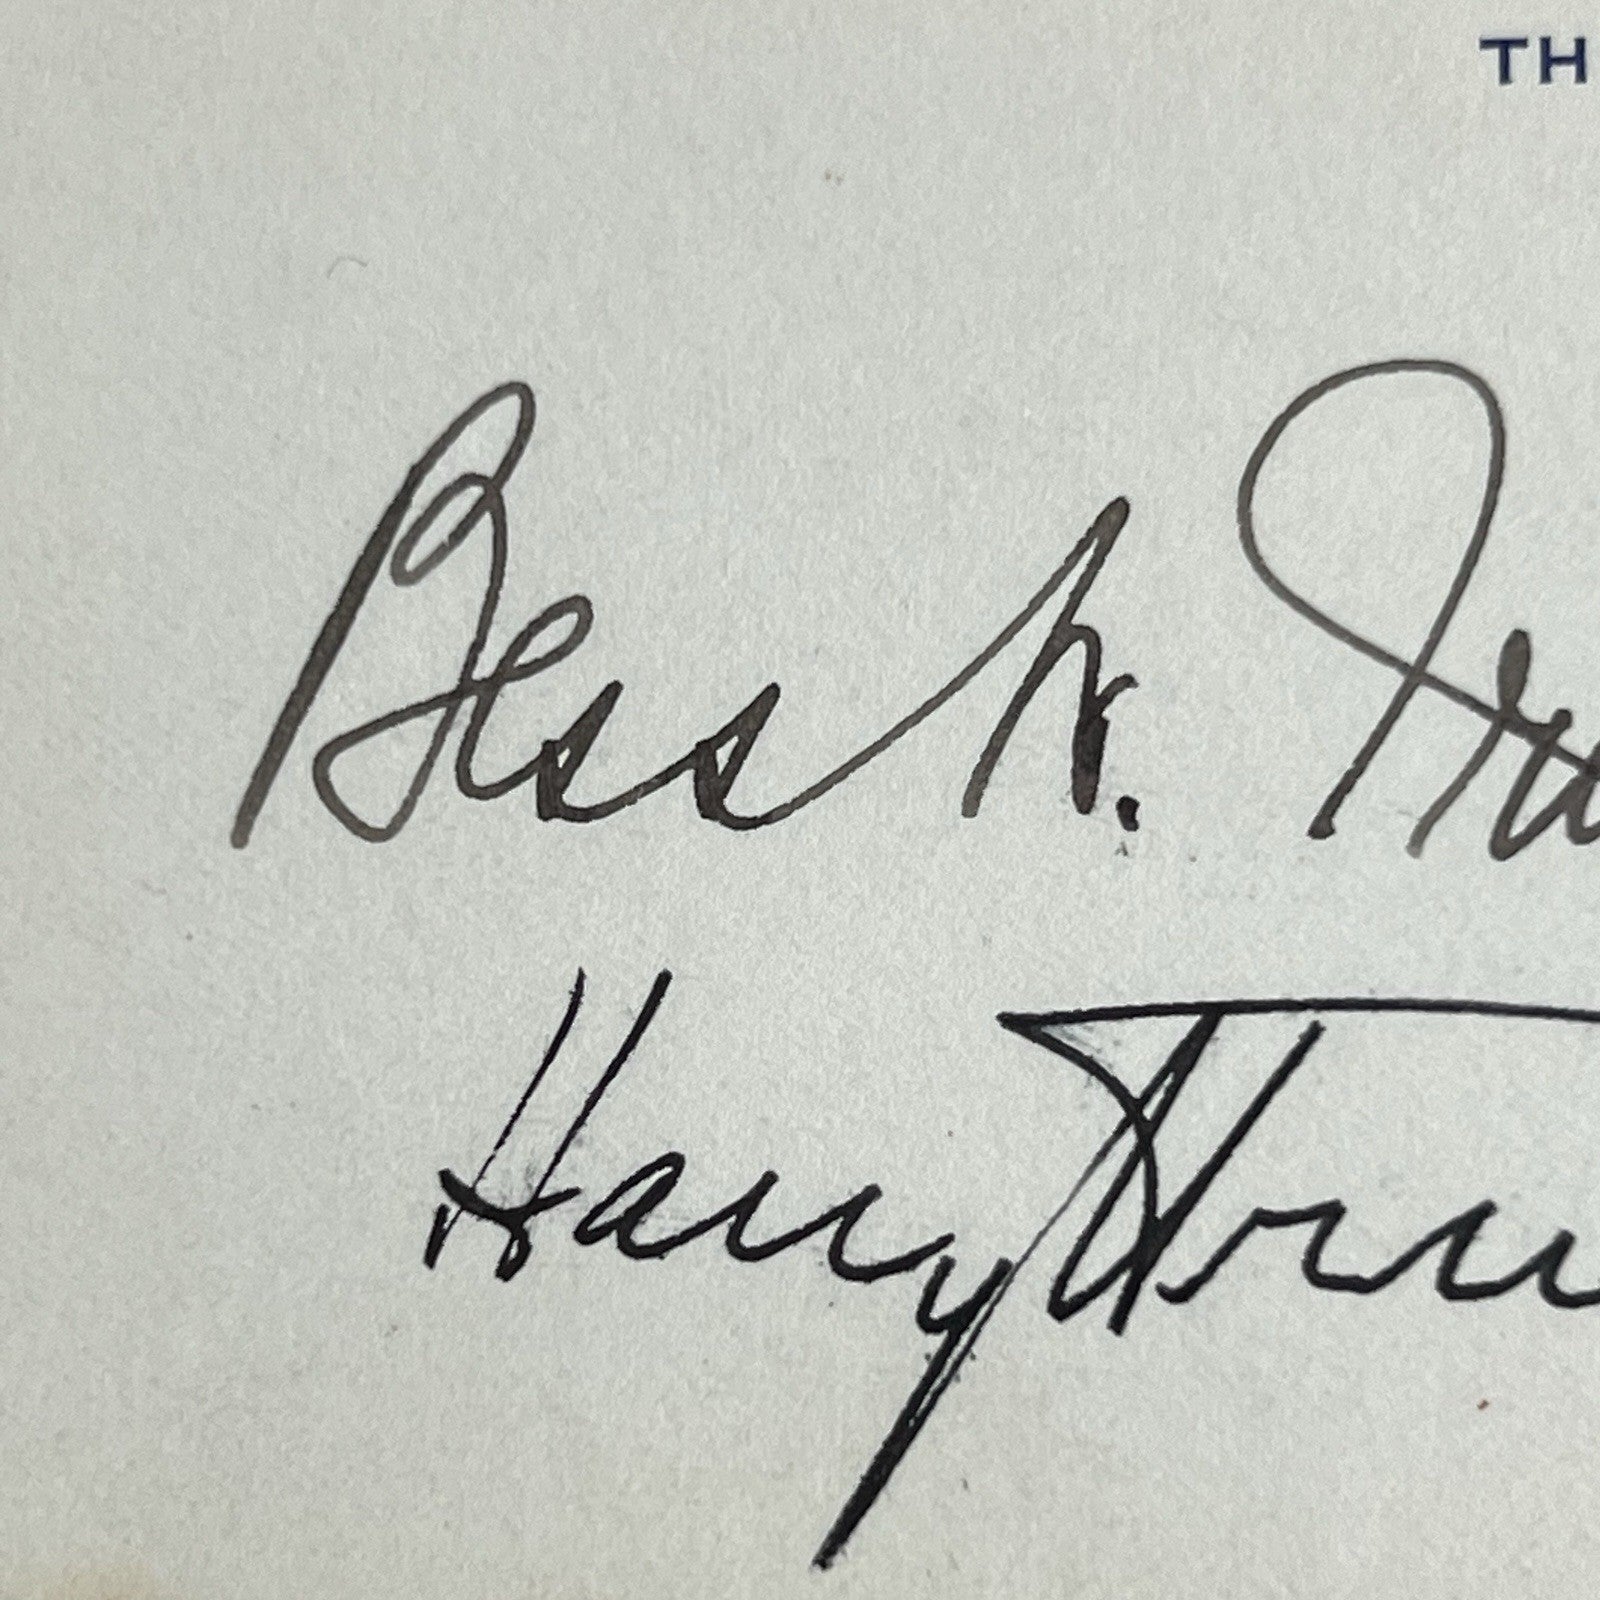 TH
Bess W. Tru
Harry Tru